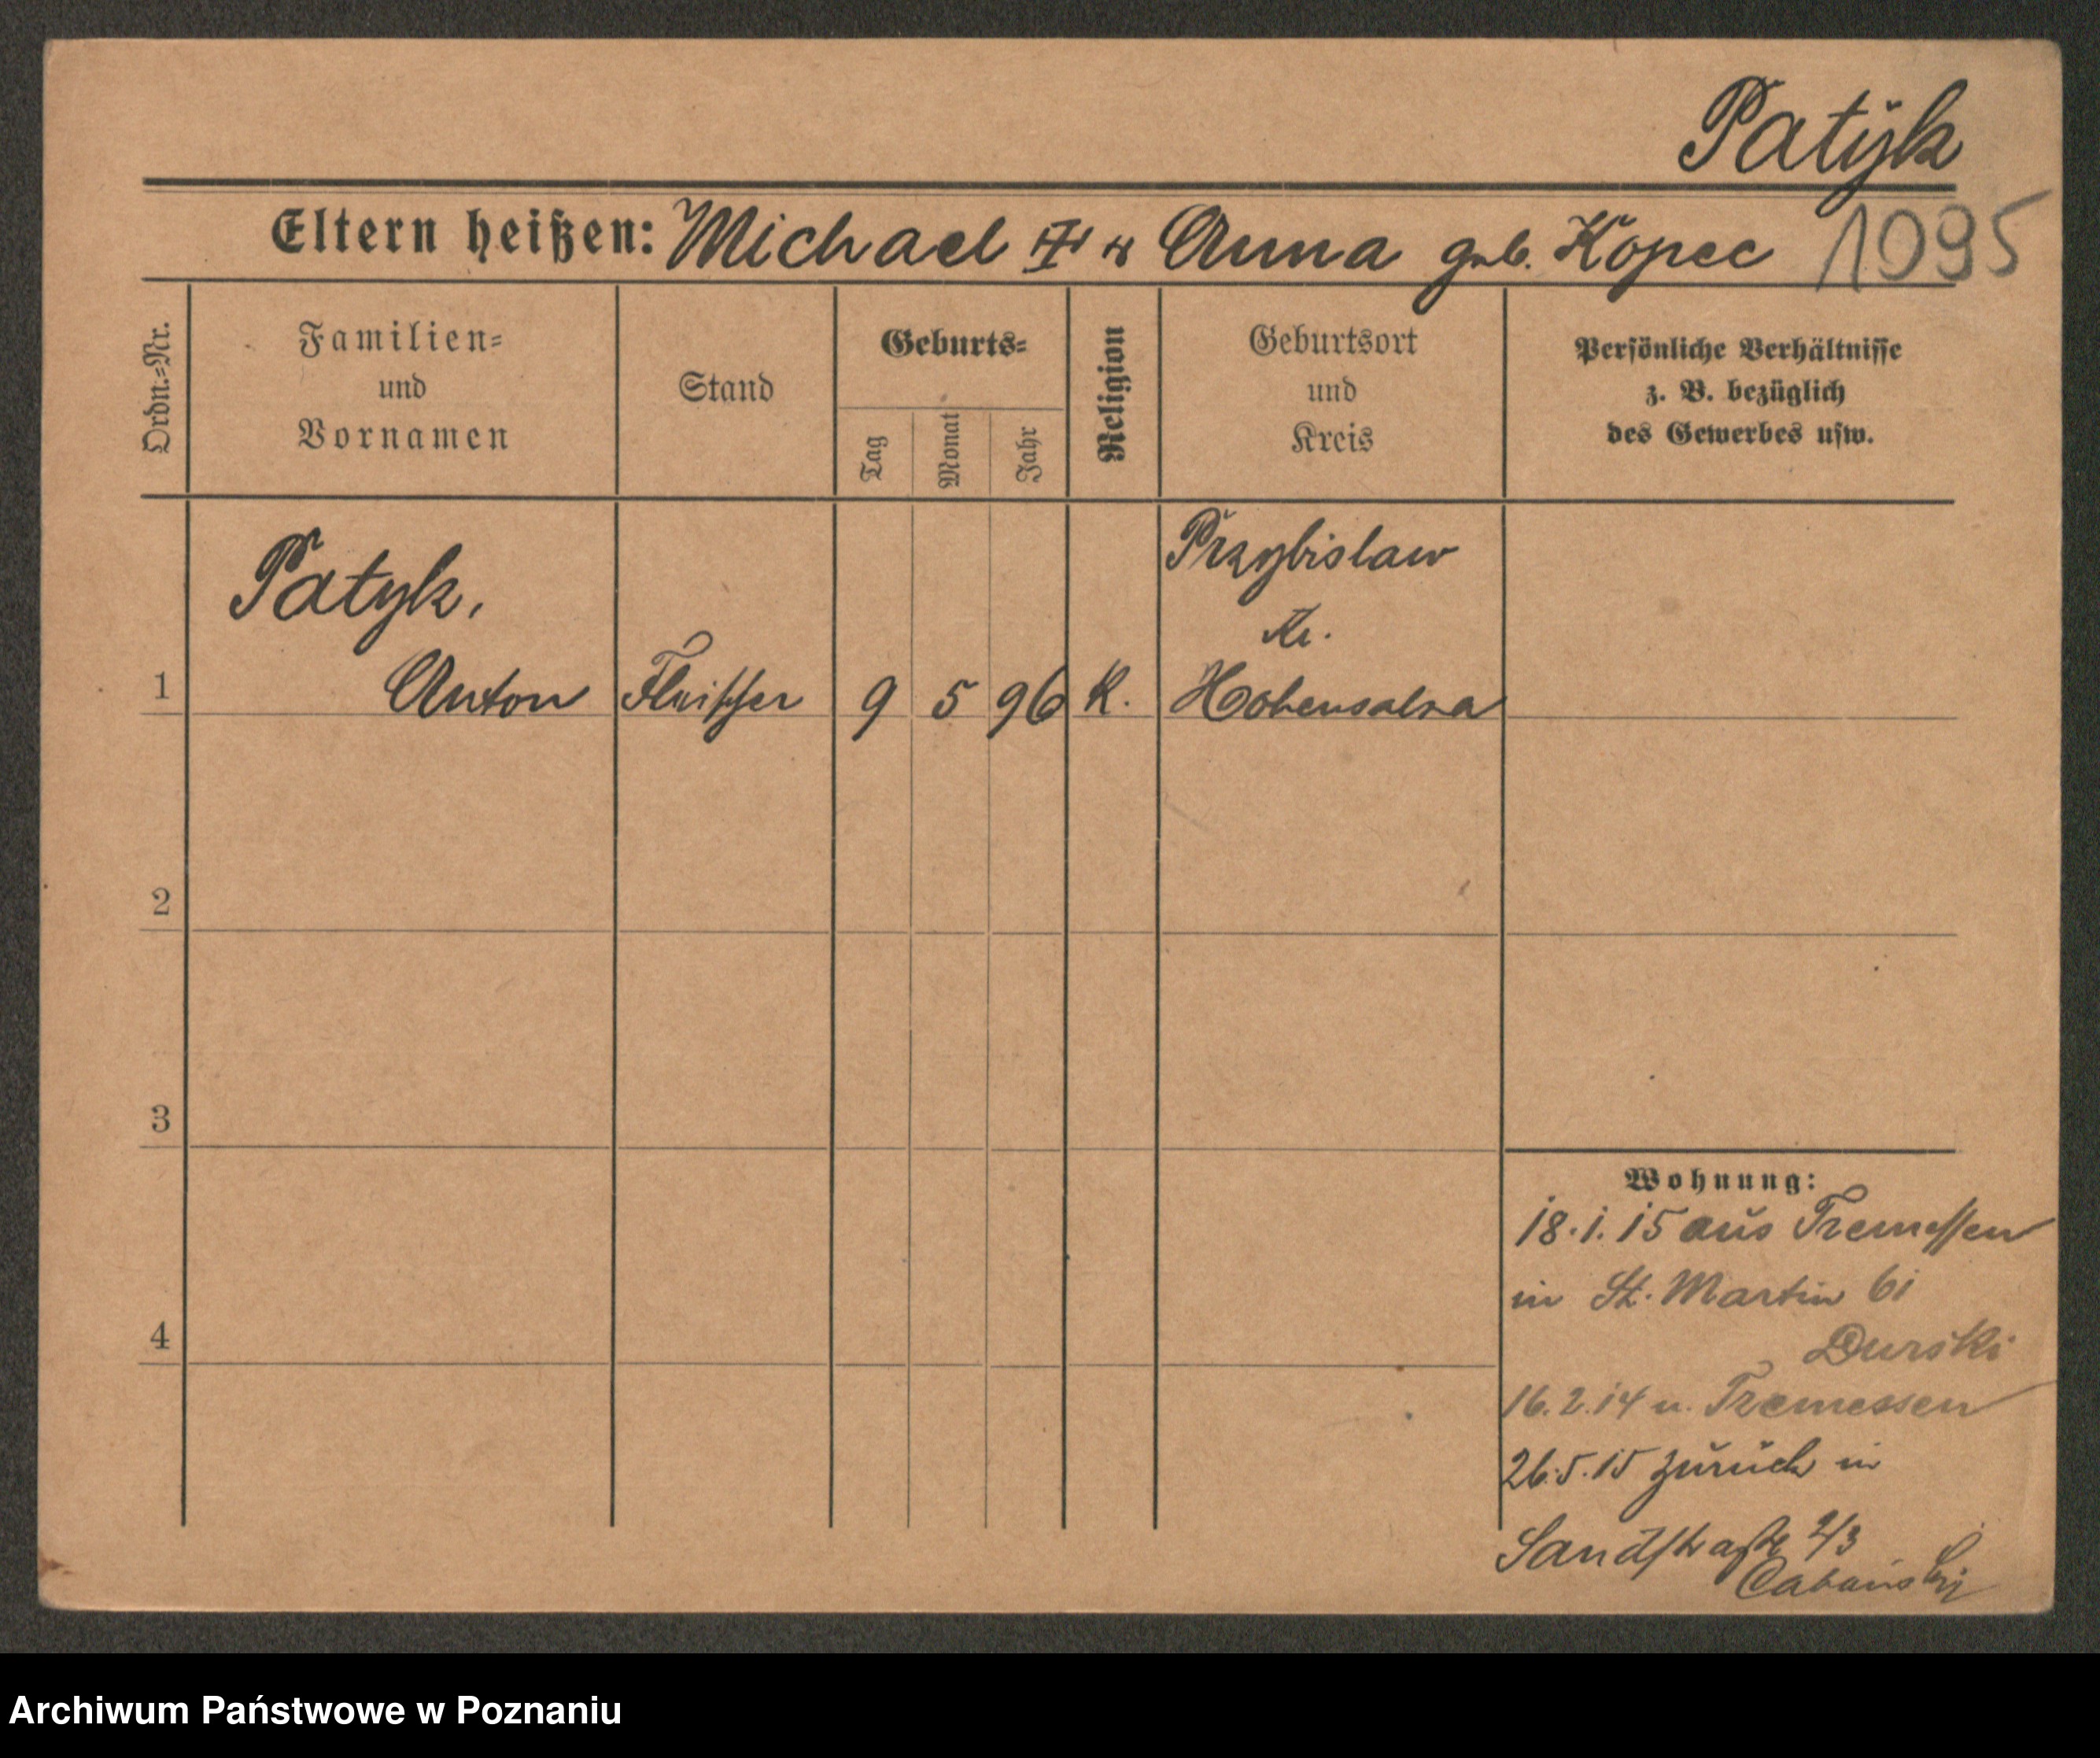 Patÿk
Eltern heißen: Michael ✝ u Anna geb. Kopec 1095
Ordn.=Nr.
Familien=
und
Vornamen
Stand
Geburts=
Tag
Monat
Jahr
Religion
Geburtsort
und
Kreis
Persönliche Verhältnisse
z. B. bezüglich
des Gewerbes usw.
Patyk,
Przybislaw
Kr.
1 Anton Fleischer 9 5 96 K. Hohensalza
2
3
4
Wohnung:
18.1.15 aus Tremessen
in St. Martin 61
Durski
16.2.14 n. Tremessen
26.5.15 zurück in
Sandstraße 2/3
Archiwum Państwowe w Poznaniu